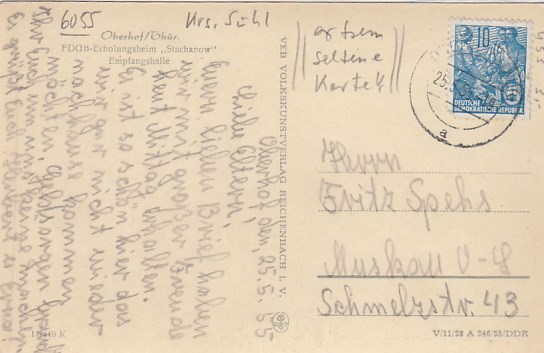 6055
Krs. Suhl
Oberhof/Thür.
FDGB-Erholungsheim „Stachanow"
Empfangshalle
extrem
seltene
Karte!!
VEB VOLKSKUNSTVERLAG REICHENBACH i. V.
10
5
DEUTSCHE
DEMOKRATISCHE REPUBLIK
25.5.
a
Oberhof den, 25.5.55
Liebe Eltern!
Euern lieben Brief haben
wir mit großer Freude
heut Mittag erhalten.
Es ist so schön hier das
wir gar nicht wieder
nachhause kommen
möchten.
Es grüßt Euch
Herrn
Fritz Spehs
Muskau O-L
Schmelzstr. 43
V/11/28 A 246/55/DDR